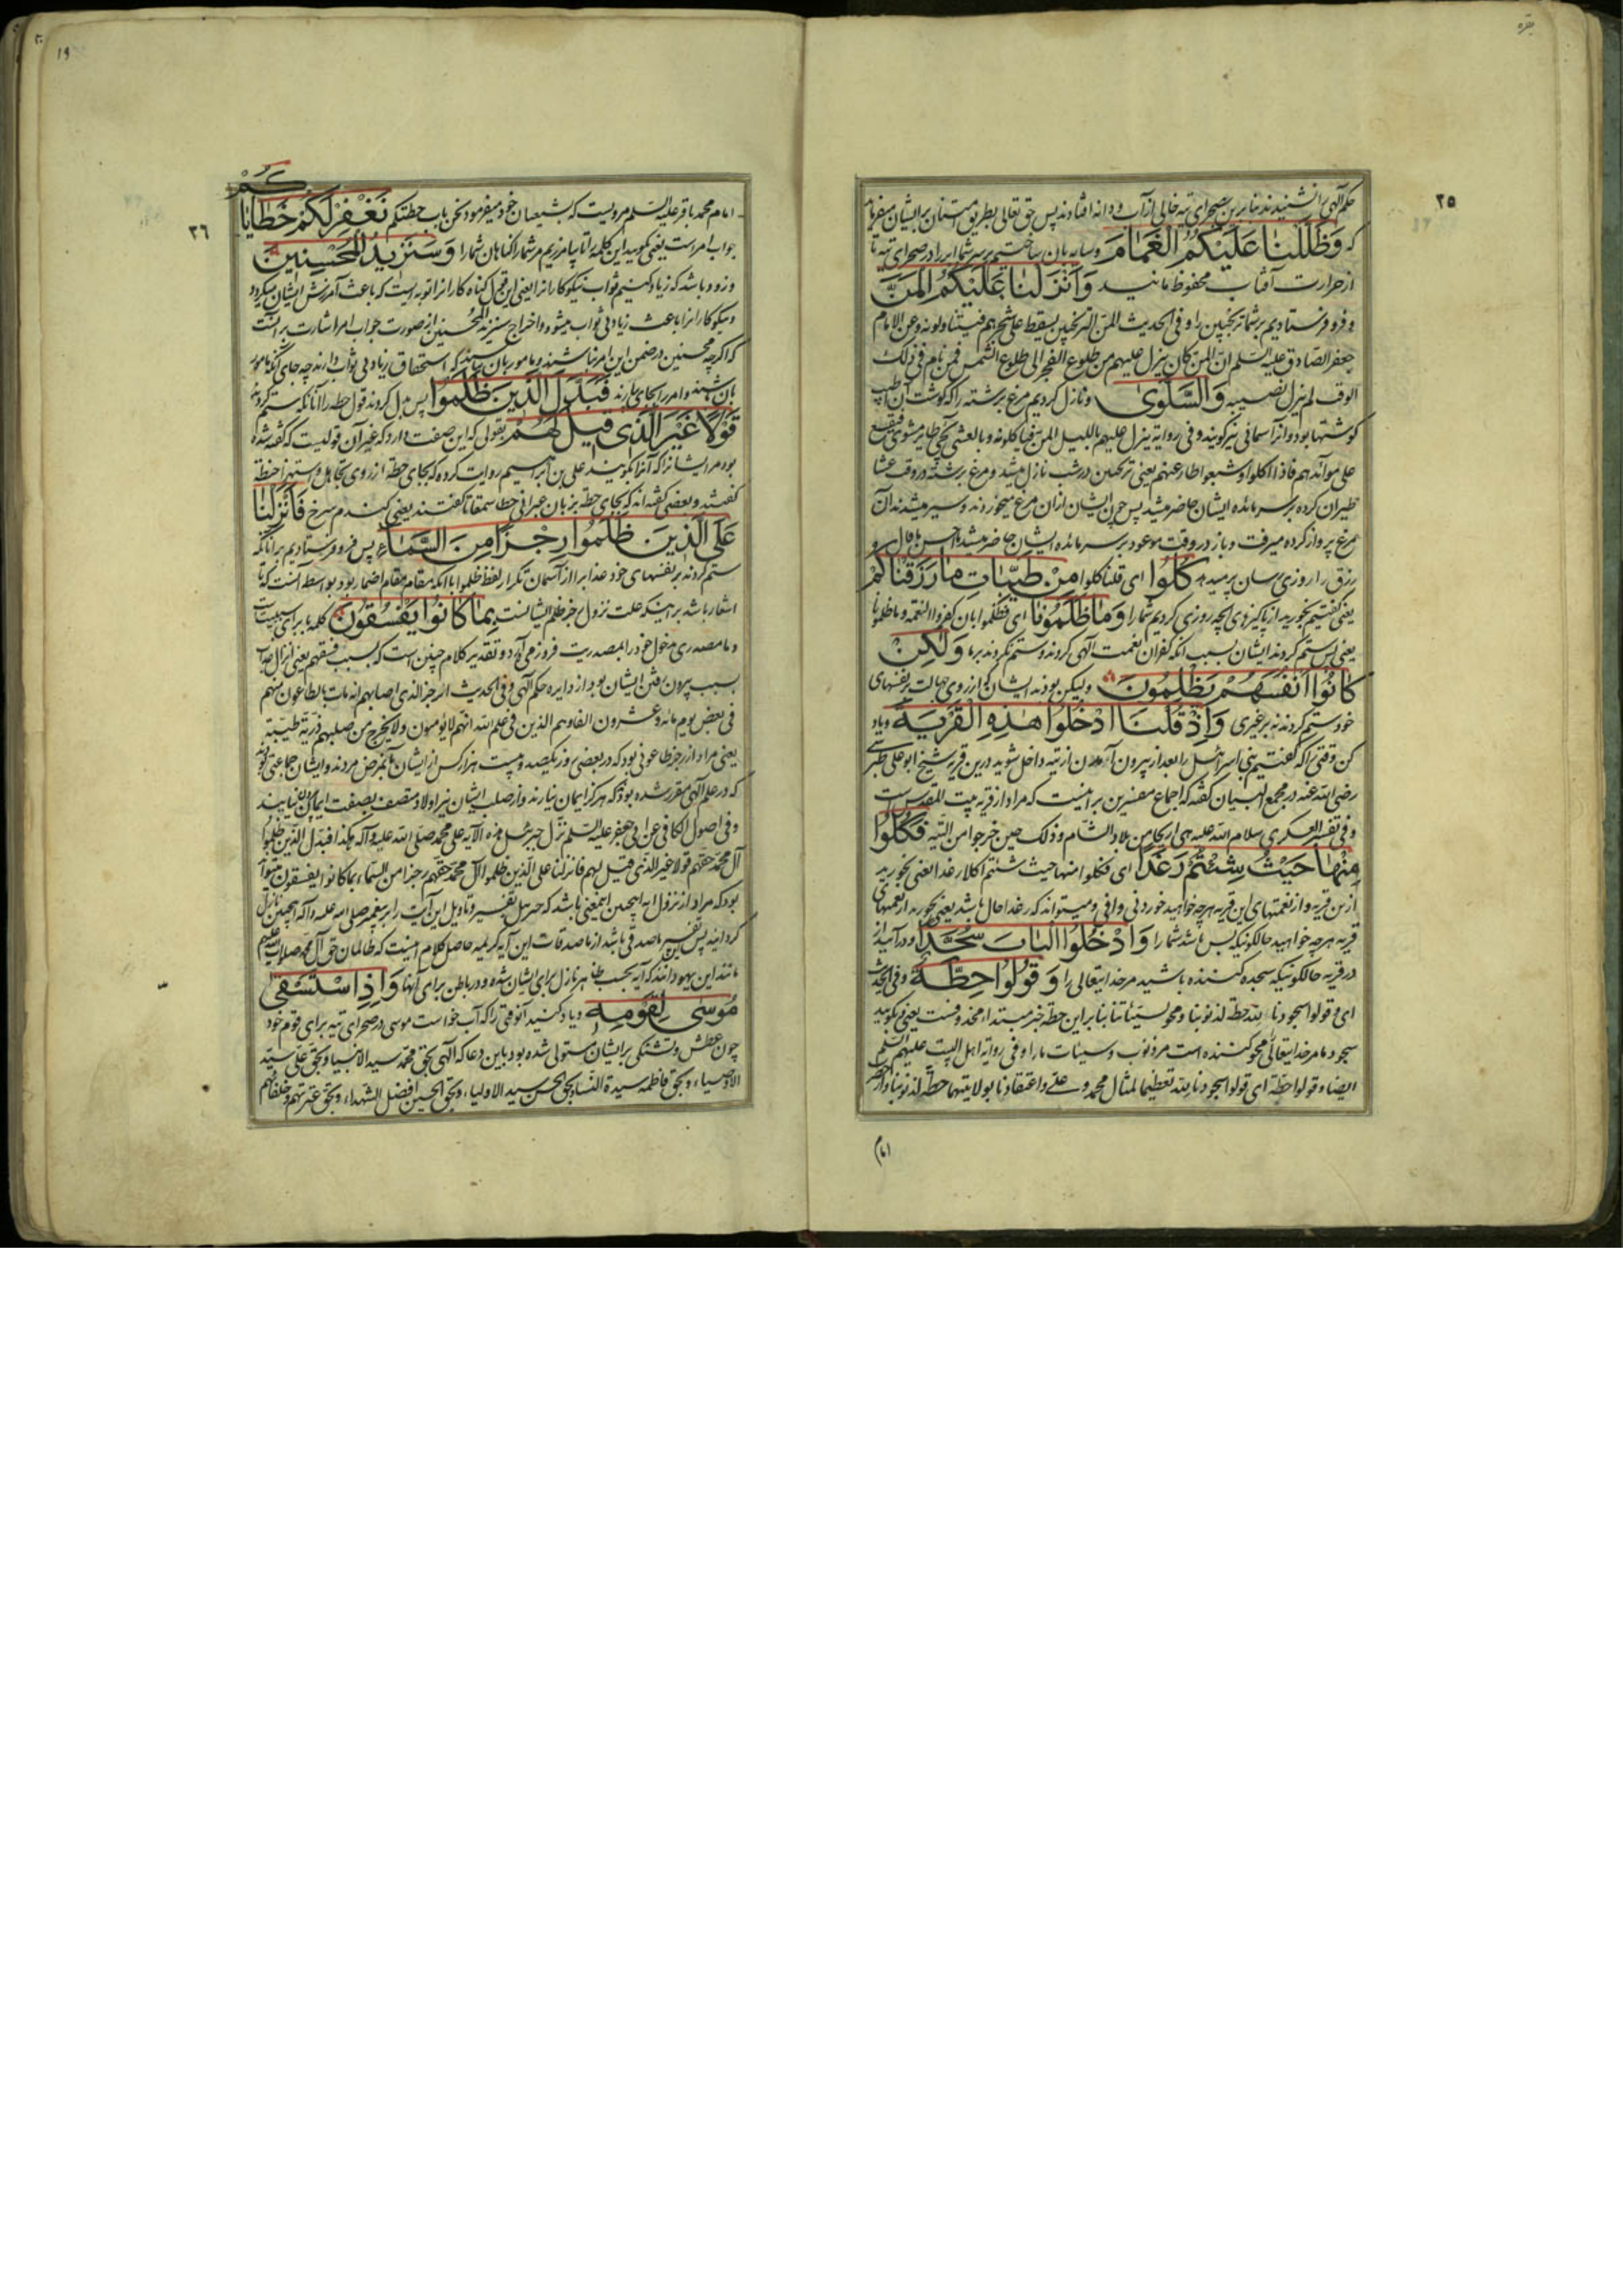 بقره
٢٥
حکم الهی را نشنیدند بنابرین بصحرای تیه خالی از آب و دانه افتادند پس حق تعالی بطریق امتنان بر ایشان میفرماید
که وَظَلَّلْنَا عَلَيْكُمُ الْغَمَامَ وسایه بان ساختیم بر سر شما ابر را در صحرای تیه تا
از حرارت آفتاب محفوظ مانید وَأَنْزَلْنَا عَلَيْكُمُ الْمَنَّ
و فرو فرستادیم بر شما ترنجبین را و فی الحدیث المن الترنجبین یسقط علی شجرهم فیتناولونه و عن الامام
جعفر الصادق علیه السلم ان المن کان ینزل علیهم من طلوع الفجر الی طلوع الشمس فمن نام فی ذلک
الوقت لم ینزل نصیبه وَالسَّلْوَىٰ و نازل کردیم مرغ برشته را که گوشت آن اطیب
گوشتها بود و آنرا سمانی نیز گویند و فی روایة ینزل علیهم باللیل المن فیاکلونه و بالعشی یجی طایر مشوی فیقع
علی موائدهم فاذا اکلوا و شبعوا طار عنهم یعنی ترنجبین در شب نازل میشد و مرغ برشته در وقت عشا
طیران کرده بر سر مائده ایشان حاضر میشد پس چون ایشان ازان مرغ میخوردند و سیر میشدند آن
مرغ پرواز کرده میرفت و باز در وقت موعود بر سر مائده ایشان حاضر میشد
رزق را روزی رسان پر میدهد كُلُوا ای قلنا کلوا مِنْ طَيِّبَاتِ مَا رَزَقْنَاكُمْ
یعنی گفتیم بخورید از پاکیزهای انچه روزی کردیم شما را وَمَا ظَلَمُونَا ای فظلموا بان کفروا النعمة و ما ظلمونا
یعنی پس ستم کردند ایشان بسبب آنکه کفران نعمت الهی کردند و ستم نکردند بر ما وَلَٰكِنْ
كَانُوا أَنْفُسَهُمْ يَظْلِمُونَ ولیکن بودند ایشان که از روی جهالت بر نفسهای
خود ستم کردند نه بر غیری وَإِذْ قُلْنَا ادْخُلُوا هَٰذِهِ الْقَرْيَةَ و یاد
کن وقتی را که گفتیم بنی اسرائیل را بعد از بیرون آمدن از تیه داخل شوید درین قریه شیخ ابو علی طبرسی
رضی الله عنه در مجمع البیان گفته که اجماع مفسرین بر اینست که مراد از قریه بیت المقدس است
و فی تفسیر العسکری سلام الله علیه هی اریحا من بلاد الشام و ذلک حین خرجوا من التیه فَكُلُوا
مِنْهَا حَيْثُ شِئْتُمْ رَغَدًا ای فکلوا منها حیث شئتم اکلا رغدا یعنی بخورید
ازین قریه و از نعمتهای این قریه هر چه خواهید خوردنی وافی و میتواند که رغدا حال باشد یعنی بخورید از نعمتهای
قریه هر چه خواهید حالکونیکه بس باشد شما را وَادْخُلُوا الْبَابَ سُجَّدًا و در آئید از
در قریه حالکونیکه سجده کننده باشید مر خدایتعالی را وَقُولُوا حِطَّةٌ و فی الحدیث
ای و قولوا سجودنا لله حطة لذنوبنا و محو لسیئاتنا بنا بر این حطة خبر مبتداء محذوفست یعنی بگویید
سجود ما مر خدایتعالی محو کننده است مر ذنوب و سیئات ما را و فی روایة اهل البیت علیهم السلم
ایضا و قولوا حطة ای قولوا سجودنا لله تعظیما لمثال محمد و علی و اعتقادنا بولایتهما حطة لذنوبنا و از حضرت
امام
١٩
٢٦
امام محمد باقر علیه السلم مرویست که بشیعیان خود میفرمود نحن باب حطتکم نَغْفِرْ لَكُمْ خَطَايَاكُمْ
جواب امر است یعنی بگویید این کلمه را تا بیامرزیم مر شما را گناهان شما را وَسَنَزِيدُ الْمُحْسِنِينَ
و زود باشد که زیاد کنیم ثواب نیکوکارانرا یعنی این قول گناه کارانرا توبه است که باعث آمرزش ایشان میگردد
و نیکوکارانرا باعث زیادتی ثواب میشود و اخراج سنزید المحسنین از صورت جواب امر اشارت بر آنست
که اگرچه محسنین در ضمن این امر نباشند و مامور بان نباشند که استحقاق زیادتی ثواب دارند چه جای آنکه مامور
بان باشند و امر را بجای آرند فَبَدَّلَ الَّذِينَ ظَلَمُوا پس بدل کردند قول حطه را آنانکه ستم کردند
قَوْلًا غَيْرَ الَّذِي قِيلَ لَهُمْ بقولی که این صفت دارد که غیر آن قولیست که گفته شده
بود مر ایشانرا که آنرا بگویند علی بن ابراهیم روایت کرده که بجای حطة از روی تجاهل و استهزا حنطة
گفتند و بعضی گفته اند که بجای حطة بزبان عبرانی حطا سمقاتا گفتند یعنی گندم سرخ فَأَنْزَلْنَا
عَلَى الَّذِينَ ظَلَمُوا رِجْزًا مِنَ السَّمَاءِ پس فرو فرستادیم بر آنانکه
ستم کردند بر نفسهای خود عذاب را از آسمان تکرار لفظ ظلموا با آنکه مقام مقام اضمار بود بواسطه آنست که تا
اشعار باشد بر اینکه علت نزول رجز ظلم ایشانست بِمَا كَانُوا يَفْسُقُونَ کلمه با برای سببیت
و ما مصدری مدخول خود را بمصدریت فرو زمی آورد و تقدیر کلام چنین است که بسبب فسقهم یعنی انزال عذاب
بسبب بیرون رفتن ایشان بود از دایره حکم الهی و فی الحدیث الرجز الذی اصابهم انه مات بالطاعون منهم
فی بعض یوم مائة و عشرون الفا و هم الذین فی علم الله انهم لایؤمنون و لا یخرج من صلبهم ذریة طیبة
یعنی مراد از رجز طاعونی بود که در بعضی روز یکصد و بیست هزار کس از ایشان بآن مرض مردند و ایشان جماعتی بودند
که در علم الهی مقرر شده بود که هرگز ایمان نیارند و از صلب ایشان نیز اولاد متصف بصفت ایمان بیرون نیایند
و فی اصول الکافی عن ابی جعفر علیه السلم نزل جبرئیل بهذه الآیه علی محمد صلی الله علیه و آله هکذا فبدل الذین ظلموا
آل محمد حقهم قولا غیر الذی قیل لهم فانزلنا علی الذین ظلموا آل محمد حقهم رجزا من السماء بما کانوا یفسقون
بود که مراد از نزول آیه اینچنین اینمعنی باشد که جبرئیل تفسیر و تاویل این آیت را بر پیغمبر صلی الله علیه و آله اینچنین نازل
گردانید پس این تفسیر ماصدقی باشد از ماصدقات این آیه کریمه حاصل کلام اینست که ظالمان حق آل محمد صلوات الله علیهم
مانند این یهودانند که آیه بحسب ظاهر نازل برای ایشان شده و در باطن برای آنها وَإِذِ اسْتَسْقَىٰ
مُوسَىٰ لِقَوْمِهِ و یاد کنید آنوقتی را که آب خواست موسی در صحرای تیه برای قوم خود
چون عطش و تشنگی بر ایشان مستولی شده بود باین دعا که الهی بحق محمد سید الانبیا و بحق علی سید
الاوصیاء و بحق فاطمه سیدة النساء و بحق الحسن سید الاولیاء و بحق الحسین افضل الشهداء و بحق عترتهم و خلفائهم